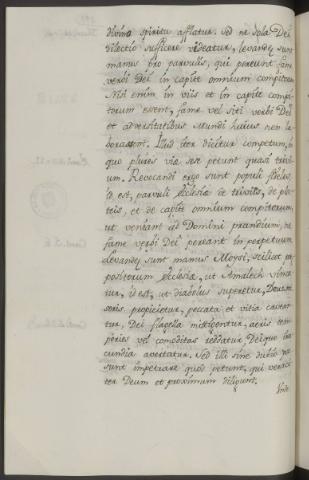 divino spiritu afflatur. sed ne sola Dei
dilectio sufficere videatur, levandæ sunt
manus pro parvulis, qui pereunt fame
verbi Dei in capite omnium compitorum
Nisi enim in viis et in capite compi
torum essent, fame vel siti verbi Dei
et adversitatibus mundi huius non la
borassent. Illud iter dicitur competum, in
quo plures viæ sese petunt quasi trivi
um. Revocandi ergo sunt populi
id est, parvuli Ecclesiæ è triviis, de pla
teis, et de capite omnium compitorum,
ut veniant ad Domini prandium, ne
fame verbi Dei pereant in perpetuum
levandæ sunt manus Moysi, scilicet præ
positorum Ecclesiæ, ut Amalech vinca
tur, id est, ut diabolus superetur, Deus
propicietur, peccata et vitia
tur, Dei flagella mitigentur, aeris tem
peries vel comoditas reddatur Deique ira
cundia avertatur. Sed illi sine dubio
sunt impetrare quod petunt, qui vera
ter Deum et proximum diligunt.